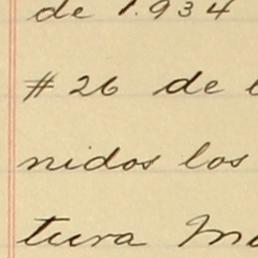 de 1.934
#26 de
nidos los
tura